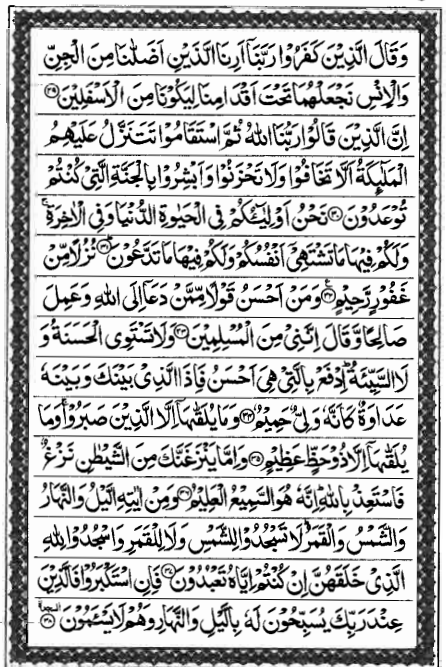 وَقَالَ الَّذِیْنَ كَفَرُوْا رَبَّنَاۤ اَرِنَا الَّذَیْنِ اَضَلّٰنَا مِنَ الْجِنِّ
وَالْاِنْسِ نَجْعَلْهُمَا تَحْتَ اَقْدَامِنَا لِیَكُوْنَا مِنَ الْاَسْفَلِیْنَ ۝۲۹
اِنَّ الَّذِیْنَ قَالُوْا رَبُّنَا اللّٰهُ ثُمَّ اسْتَقَامُوْا تَتَنَزَّلُ عَلَیْهِمُ
الْمَلٰٓىِٕكَةُ اَلَّا تَخَافُوْا وَلَا تَحْزَنُوْا وَاَبْشِرُوْا بِالْجَنَّةِ الَّتِیْ كُنْتُمْ
تُوْعَدُوْنَ ۝۳۰ نَحْنُ اَوْلِیٰٓؤُكُمْ فِی الْحَیٰوةِ الدُّنْیَا وَفِی الْاٰخِرَةِ ۚ
وَلَكُمْ فِیْهَا مَا تَشْتَهِیْۤ اَنْفُسُكُمْ وَلَكُمْ فِیْهَا مَا تَدَّعُوْنَ ۝۳۱ نُزُلًا مِّنْ
غَفُوْرٍ رَّحِیْمٍ ۝۳۲ وَمَنْ اَحْسَنُ قَوْلًا مِّمَّنْ دَعَاۤ اِلَی اللّٰهِ وَعَمِلَ
صَالِحًا وَّقَالَ اِنَّنِیْ مِنَ الْمُسْلِمِیْنَ ۝۳۳ وَلَا تَسْتَوِی الْحَسَنَةُ وَ
لَا السَّیِّئَةُ ؕ اِدْفَعْ بِالَّتِیْ هِیَ اَحْسَنُ فَاِذَا الَّذِیْ بَیْنَكَ وَبَیْنَهٗ
عَدَاوَةٌ كَاَنَّهٗ وَلِیٌّ حَمِیْمٌ ۝۳۴ وَمَا یُلَقّٰىهَاۤ اِلَّا الَّذِیْنَ صَبَرُوْا ۚ وَمَا
یُلَقّٰىهَاۤ اِلَّا ذُوْ حَظٍّ عَظِیْمٍ ۝۳۵ وَاِمَّا یَنْزَغَنَّكَ مِنَ الشَّیْطٰنِ نَزْغٌ
فَاسْتَعِذْ بِاللّٰهِ ؕ اِنَّهٗ هُوَ السَّمِیْعُ الْعَلِیْمُ ۝۳۶ وَمِنْ اٰیٰتِهِ الَّیْلُ وَالنَّهَارُ
وَالشَّمْسُ وَالْقَمَرُ ؕ لَا تَسْجُدُوْا لِلشَّمْسِ وَلَا لِلْقَمَرِ وَاسْجُدُوْا لِلّٰهِ
الَّذِیْ خَلَقَهُنَّ اِنْ كُنْتُمْ اِیَّاهُ تَعْبُدُوْنَ ۝۳۷ فَاِنِ اسْتَكْبَرُوْا فَالَّذِیْنَ
عِنْدَ رَبِّكَ یُسَبِّحُوْنَ لَهٗ بِالَّیْلِ وَالنَّهَارِ وَهُمْ لَا یَسْـَٔمُوْنَ ۝۳۸ السجدة